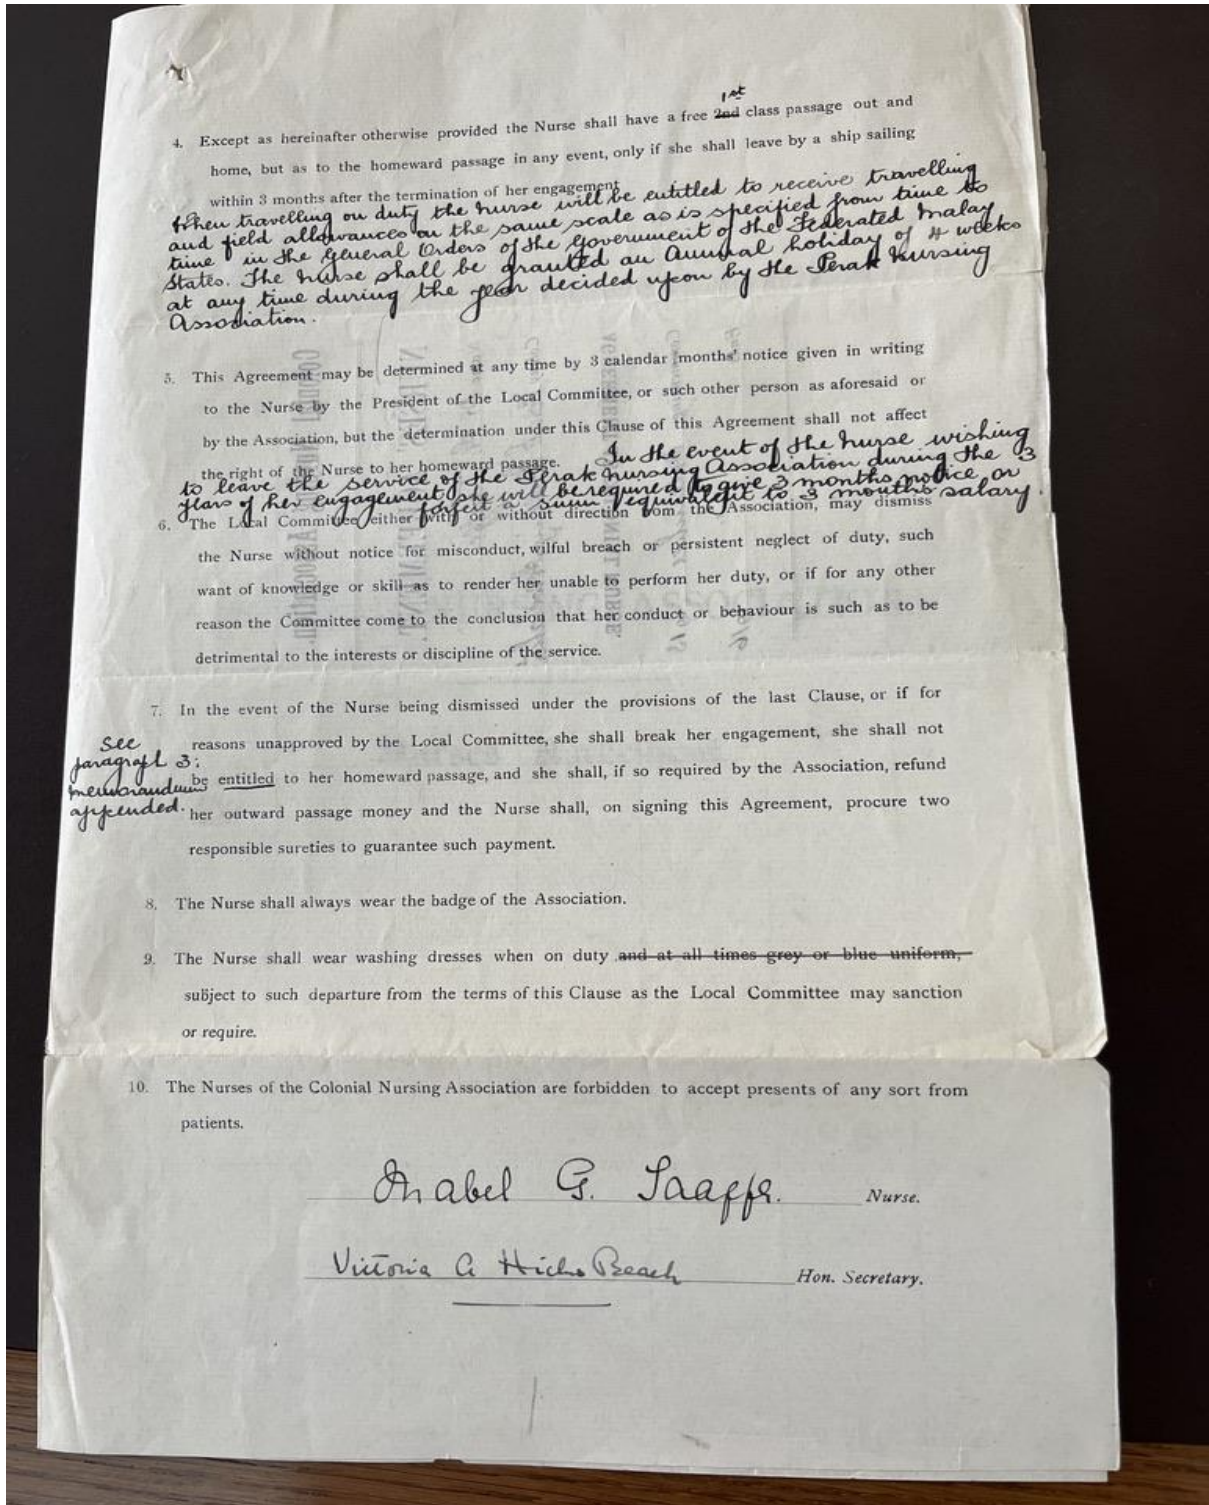 1st
4. Except as hereinafter otherwise provided the Nurse shall have a free 2nd class passage out and
home, but as to the homeward passage in any event, only if she shall leave by a ship sailing
within 3 months after the termination of her engagement.
When travelling on duty the nurse will be entitled to receive travelling
and field allowances on the same scale as is specified from time to
time in the General Orders of the Government of the Federated Malay
States. The nurse shall be granted an Annual holiday of 4 weeks
at any time during the year decided upon by the Perak Nursing
Association.
5. This Agreement may be determined at any time by 3 calendar months' notice given in writing
to the Nurse by the President of the Local Committee, or such other person as aforesaid or
by the Association, but the determination under this Clause of this Agreement shall not affect
the right of the Nurse to her homeward passage. In the event of the nurse wishing
to leave the service of the Perak Nursing Association during the 3
years of her engagement she will be required to give 3 months notice or
forfeit a sum equivalent to 3 months salary.
6. The Local Committee either with or without direction from the Association, may dismiss
the Nurse without notice for misconduct, wilful breach or persistent neglect of duty, such
want of knowledge or skill as to render her unable to perform her duty, or if for any other
reason the Committee come to the conclusion that her conduct or behaviour is such as to be
detrimental to the interests or discipline of the service.
7. In the event of the Nurse being dismissed under the provisions of the last Clause, or if for
reasons unapproved by the Local Committee, she shall break her engagement, she shall not
be entitled to her homeward passage, and she shall, if so required by the Association, refund
her outward passage money and the Nurse shall, on signing this Agreement, procure two
responsible sureties to guarantee such payment.
see
paragraph 3:
memorandum
appended.
8. The Nurse shall always wear the badge of the Association.
9. The Nurse shall wear washing dresses when on duty and at all times grey or blue uniform,
subject to such departure from the terms of this Clause as the Local Committee may sanction
or require.
10. The Nurses of the Colonial Nursing Association are forbidden to accept presents of any sort from
patients.
Mabel G. Nurse.
Victoria A Hicks Beach Hon. Secretary.